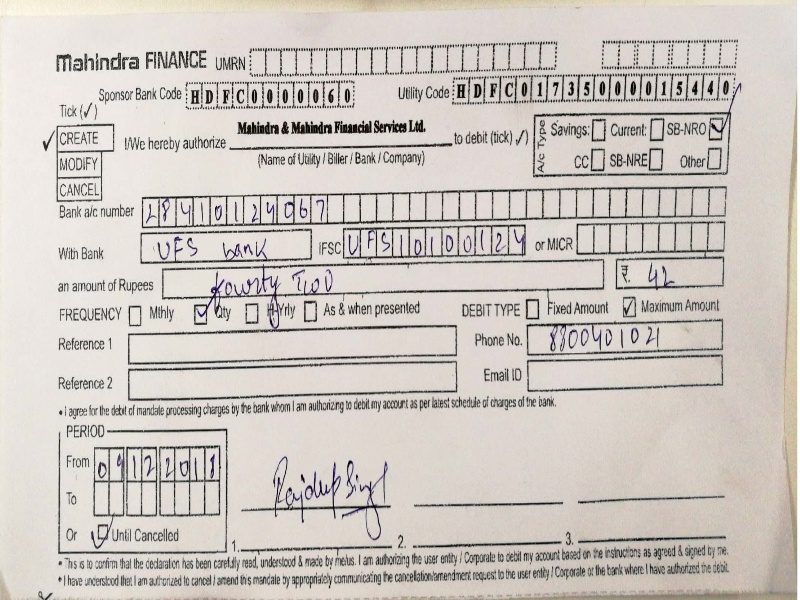 Mahindra FINANCE UMRN
Sponsor Bank Code HDFC0000060 Utility Code HDFC01735000015440
Tick (✓)
✓ CREATE
MODIFY
CANCEL
I/We hereby authorize Mahindra & Mahindra Financial Services Ltd. to debit (tick) ✓)
(Name of Utility / Biller / Bank / Company)
A/c Type Savings: Current: SB-NRO ✓
CC SB-NRE Other
Bank a/c number 28410124067
With Bank UFS bank IFSC UFS10100124 or MICR
an amount of Rupees fourty Two ₹. 42
FREQUENCY Mthly ✓ Qty H-Yrly As & when presented DEBIT TYPE Fixed Amount ✓ Maximum Amount
Reference 1 Phone No. 8800401021
Reference 2 Email ID
• I agree for the debit of mandate processing charges by the bank whom I am authorizing to debit my account as per latest schedule of charges of the bank.
PERIOD
From 09122018
To
Or ✓ Until Cancelled
Rajdeep Singh
1. 2. 3.
• This is to confirm that the declaration has been carefully read, understood & made by me/us. I am authorizing the user entity / Corporate to debit my account based on the instructions as agreed & signed by me.
• I have understood that I am authorized to cancel / amend this mandate by appropriately communicating the cancellation/amendment request to the user entity / Corporate or the bank where I have authorized the debit.